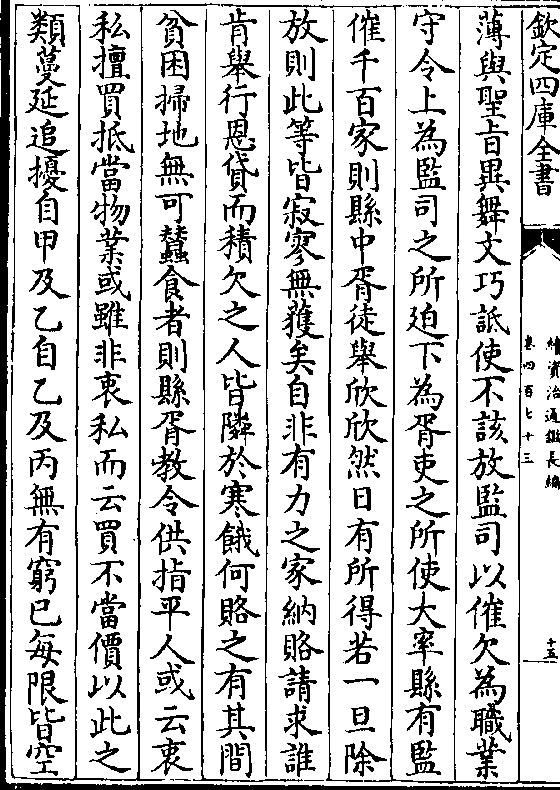 欽定四庫全書
續資治通鑑長編
卷四百七十三
十五
薄與聖旨異舞文巧詆使不該放監司以催欠為職業
守令上為監司之所迫下為胥吏之所使大率縣有監
催千百家則縣中胥徒舉欣欣然日有所得若一旦除
放則此等皆寂寥無獲矣自非有力之家納賂請求誰
肯舉行恩貸而積欠之人皆隣於寒餓何賂之有其間
貧困掃地無可蠶食者則縣胥教令供指平人或云衷
私擅買抵當物業或雖非衷私而云買不當價以此之
類蔓延追擾自甲及乙自乙及丙無有窮已每限皆空